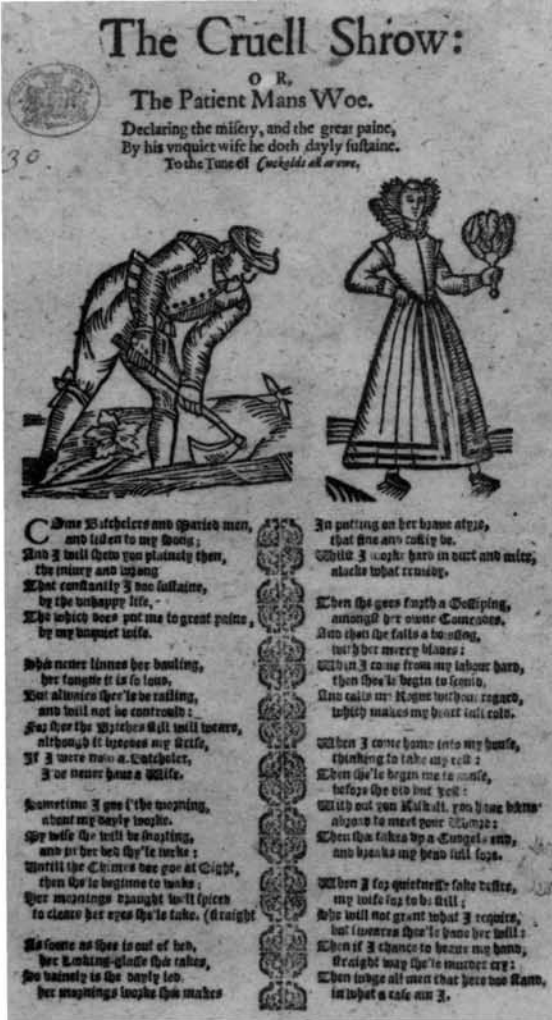 The Cruell Shrow:
OR,
The Patient Mans Woe.
Declaring the misery, and the great paine,
By his vnquiet wife he doth dayly sustaine.
To the Tune of Cuckolds all arowe.
30.
COme Batchelers and Maried men,
and listen to my Song:
And I will shew you plainely then,
the iniury and wrong
That constantly I doe sustaine,
by the vnhappy life,
The which does put me to great paine,
by my vnquiet wife.
She never linnes her bauling,
her tongue it is so loud,
But alwaies shee'le be railing,
and will not be controuled:
For shee the Britches still will weare,
although it breedes my strife,
If I were now a Batcheler,
I'de never have a Wife.
Sometime I goe i'the morning,
about my dayly worke,
My wife she will be snorting,
and in her bed she'le lurke:
Untill the Chimes doe goe at Eight,
then she'le beginne to wake;
Her mornings draught well spiced
to cleare her eyes she'le take. (straight
As soone as shee is out of bed,
her Looking-glasse she takes,
So vainely is she dayly led,
her mornings worke she makes
In putting on her brave atyre,
that fine and costly be,
While I worke hard in durt and mire,
alacke what remedy.
Then she goes forth a Gossiping,
amongst her owne Comrades,
And then she falls a bowsing,
with her merry blades:
When I come from my labour hard,
then shee'le begin to scould,
And calls me Rogue without regard,
which makes my heart full cold.
When I come home into my house,
thinking to take my rest:
Then she'le begin me to
before she did but
With out you Raskall, you have beene
abroad to meet your Whore:
Then she takes up a Cudgels end,
and breaks my head full sore.
When I for quietnesse sake desire,
my wife for to be still;
She will not grant what I require,
but sweares she'le have her will:
Then if I chance to heave my hand,
straight way she'le murder cry:
Then iudge all men that here doe stand,
in what a case am I.